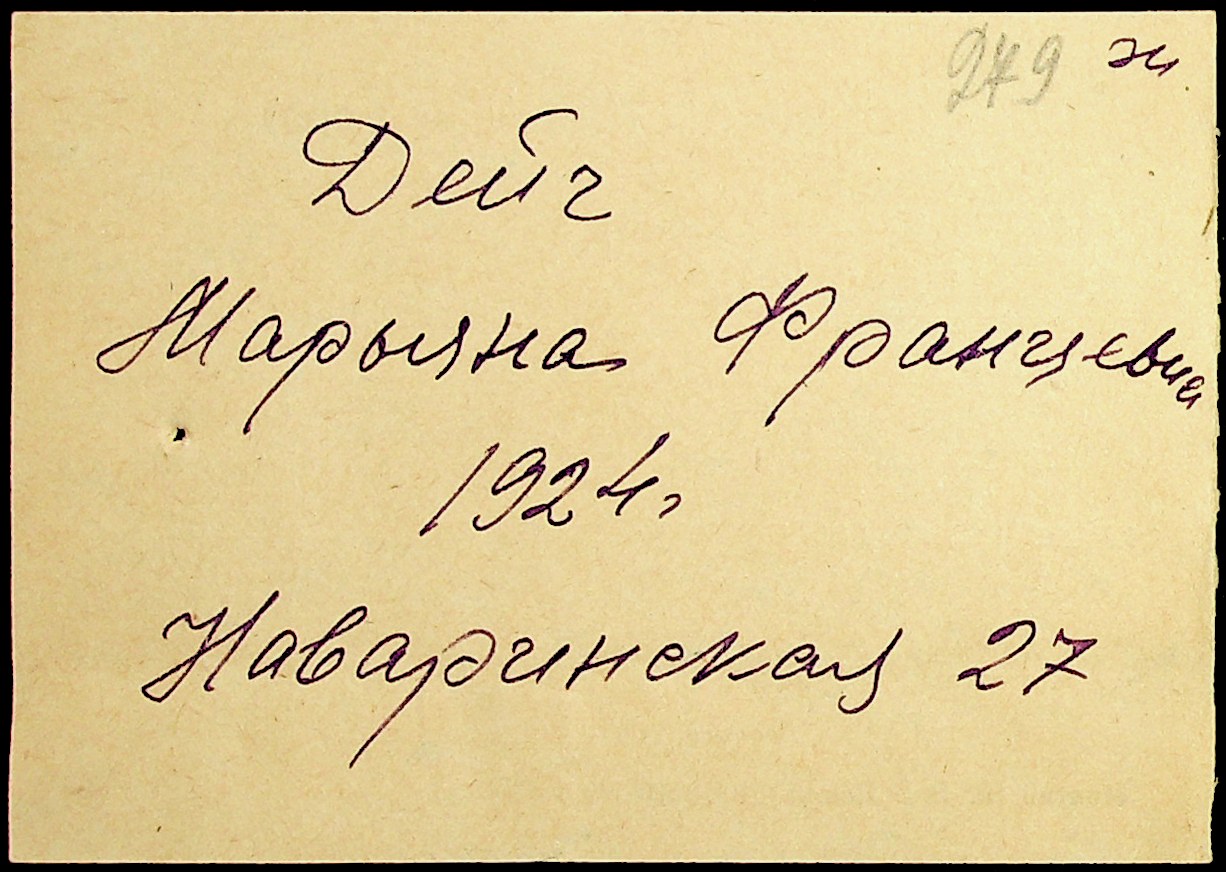 249 ж
Дейч
Марьяна Францевна
1924г
Наваринская 27